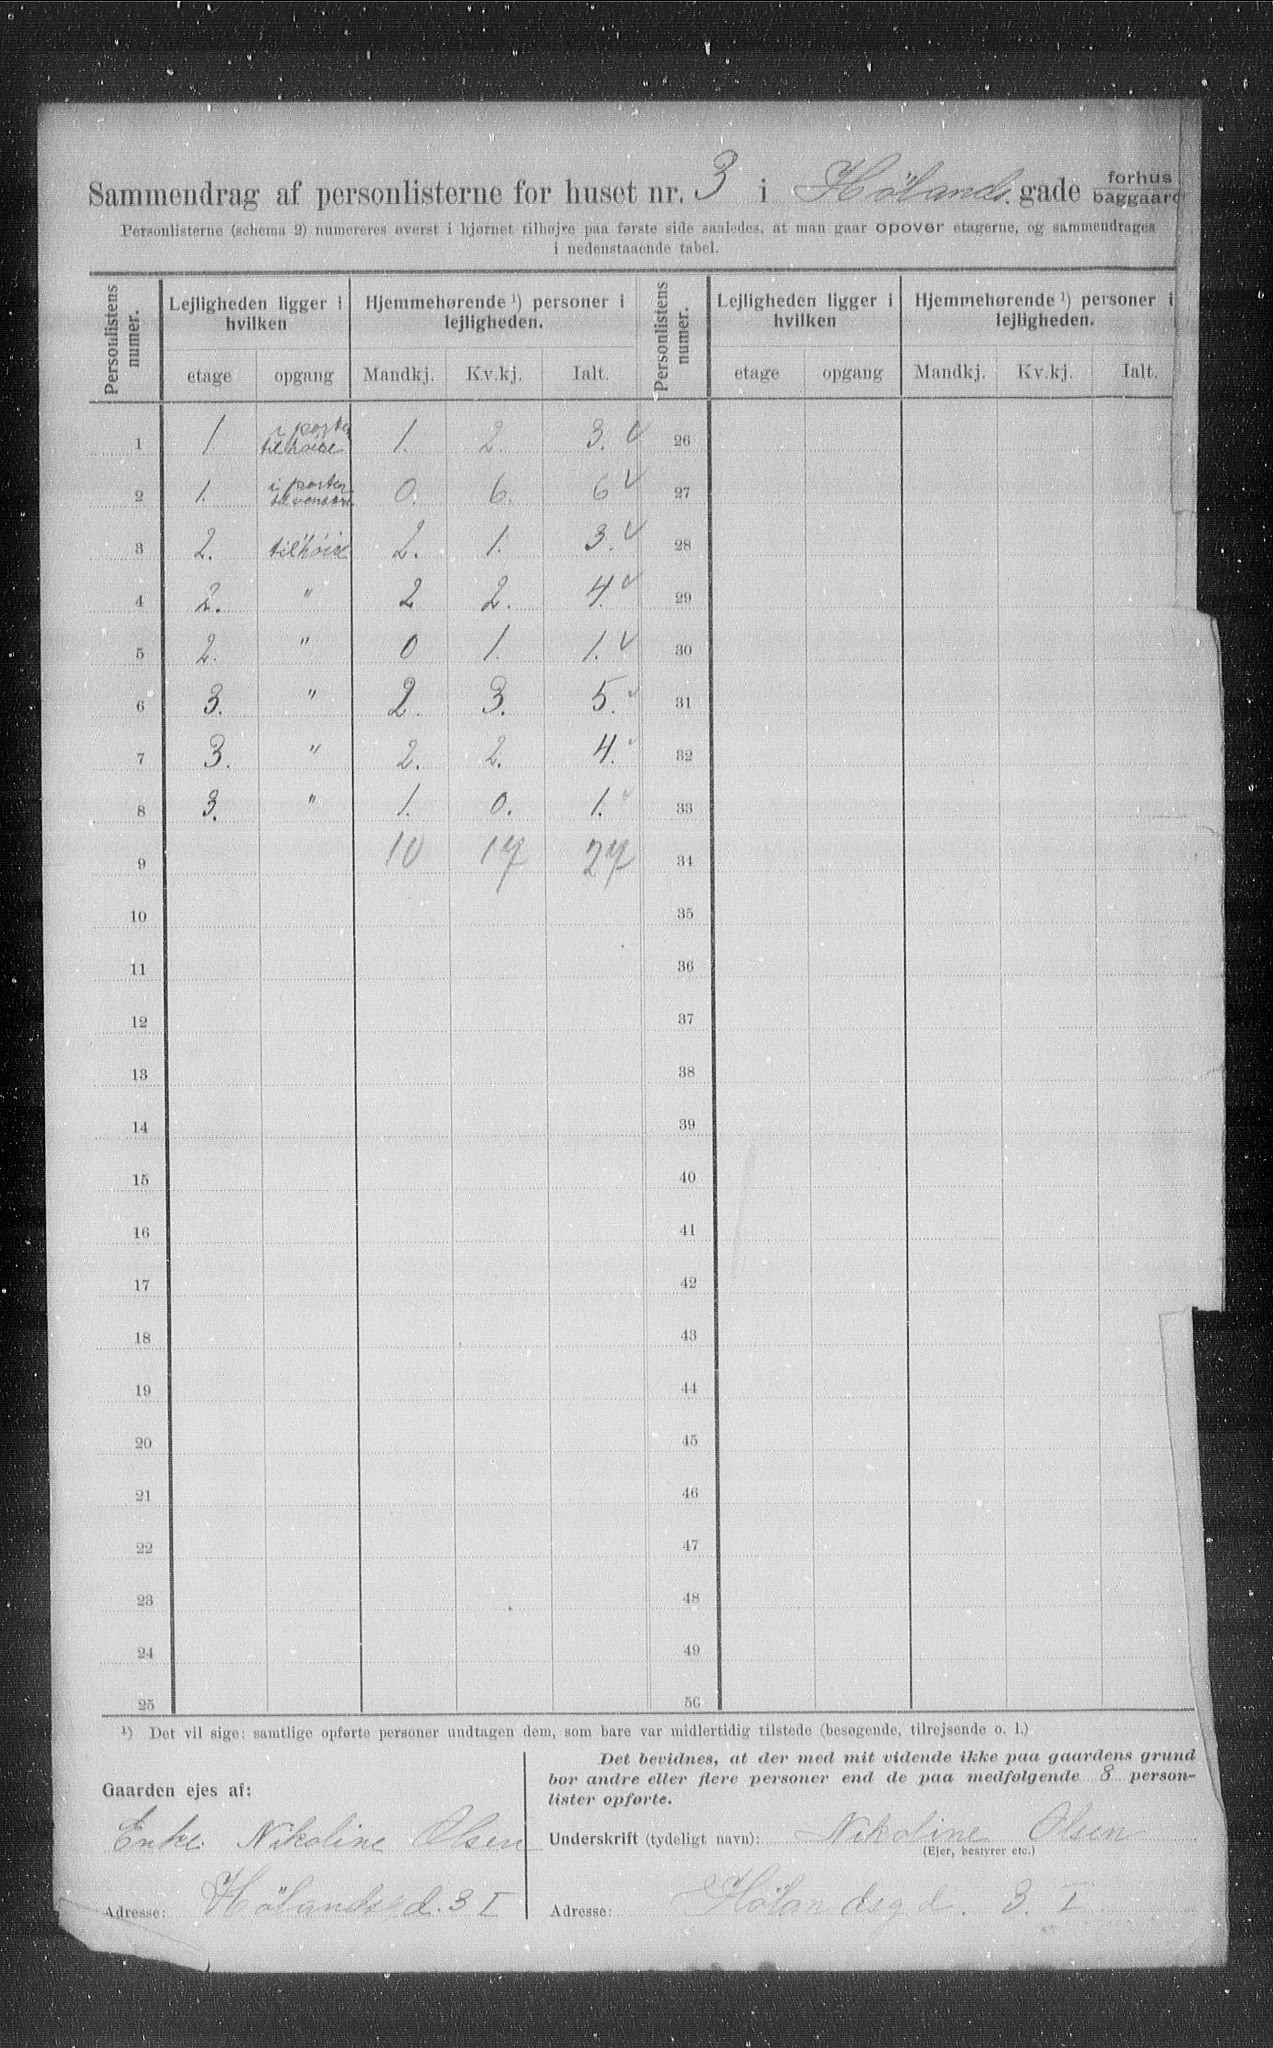 Sammendrag af personlisterne for huset nr. 3 i Hölands. gade forhus baggaard
Personlisterne (schema 2) numereres øverst i hjørnet tilhøjre paa første side saaledes, at man gaar opover etagerne, og sammendrages
i nedenstaaende tabel.
Personlistens numer. Lejligheden ligger i hvilken Hjemmehørende ¹) personer i lejligheden. Personlistens numer. Lejligheden ligger i hvilken Hjemmehørende ¹) personer i lejligheden.
etage opgang Mandkj. Kv.kj. Ialt. etage opgang Mandkj. Kv.kj. Ialt.
1 1. i porten tilhöire 1. 2. 3. 26
2 1. i porten tilvenstre 0. 6. 6 27
3 2. tilhöire 2. 1. 3. 28
4 2. " 2 2. 4. 29
5 2. " 0 1. 1. 30
6 3. " 2. 3. 5. 31
7 3. " 2. 2. 4. 32
8 3. " 1. 0. 1. 33
9 10 17 27 34
10 35
11 36
12 37
13 38
14 39
15 40
16 41
17 42
18 43
19 44
20 45
21 46
22 47
23 48
24 49
25 50
¹) Det vil sige: samtlige opførte personer undtagen dem, som bare var midlertidig tilstede (besøgende, tilrejsende o. l.)
Gaarden ejes af:
Enke Nikoline Olsen
Adresse: Hölandsgd. 3 I
Det bevidnes, at der med mit vidende ikke paa gaardens grund
bor andre eller flere personer end de paa medfølgende 8 person-
lister opførte.
Underskrift (tydeligt navn): Nikoline Olsen
(Ejer, bestyrer etc.)
Adresse: Hölandsgd. 3. I